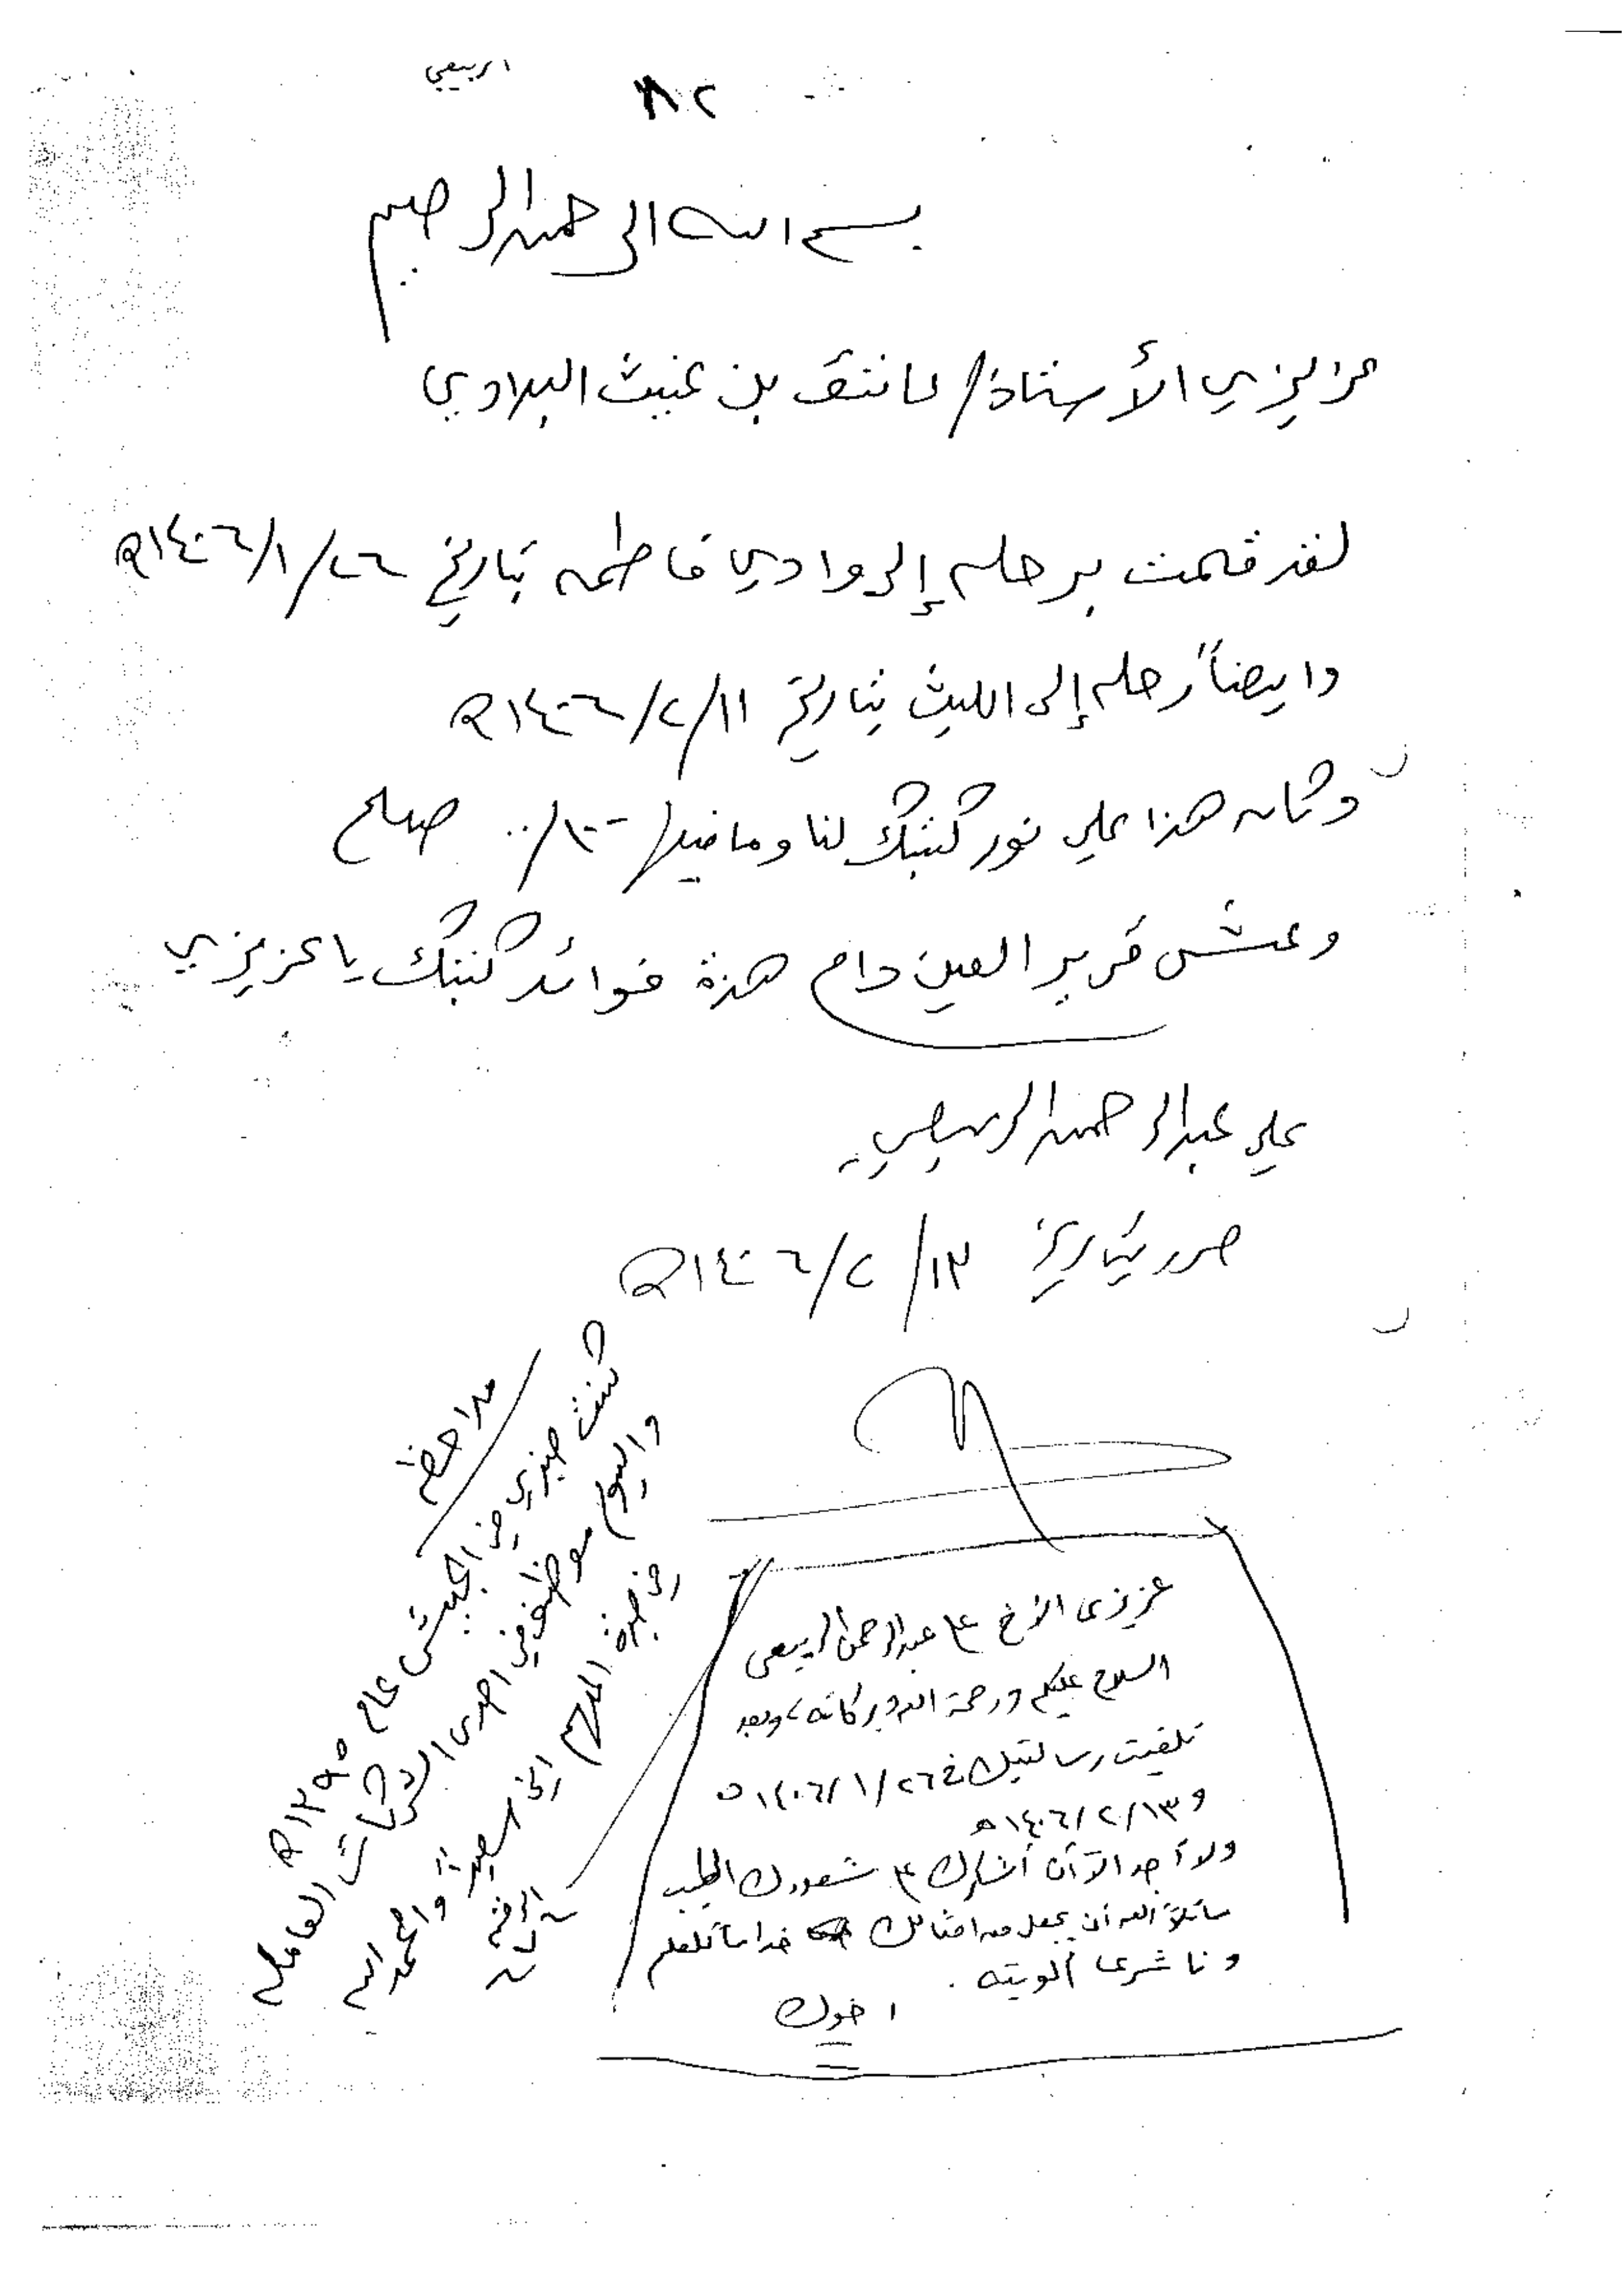 الربيعي
٨٢
بسم الله الرحمن الرحيم
عزيزي الأستاذ/ عاتق بن غيث البلادي
لقد قمت برحله إلى وادي فاطمه بتاريخ ٢٦/١/١٤٠٦ه
وايضاً رحله إلى الليث بتاريخ ١١/٢/١٤٠٦ه
وكان هذا على نور كتبك لنا وما فيها ١٠٠/٠٠ صلح
وعشت قرير العين دام هذه فوائد كتبك يا عزيزي
علي عبدالرحمن الربيعي
حرر بتاريخ ١٣/٢/١٤٠٦ه
ملاحظه
كنت جندي في الجيش عام ١٣٩٥ه
واليوم موظف في احدى الشركات العامله
في جده المهم اني سعيداً والحمد لله
عزيزى الأخ علي عبدالرحمن الربيعى
السلام عليكم ورحمة الله وبركاته، وبعد
تلقيت رسالتيك في ٢٦/١/١٤٠٦ه
و ١٣/٢/١٤٠٦ه
ولا أجد الآ أن أشارك شعورك الطيب
سائلاً الله أن يجعل من امثالك خداماً للعلم
وناشرى ألويته .
اخوك